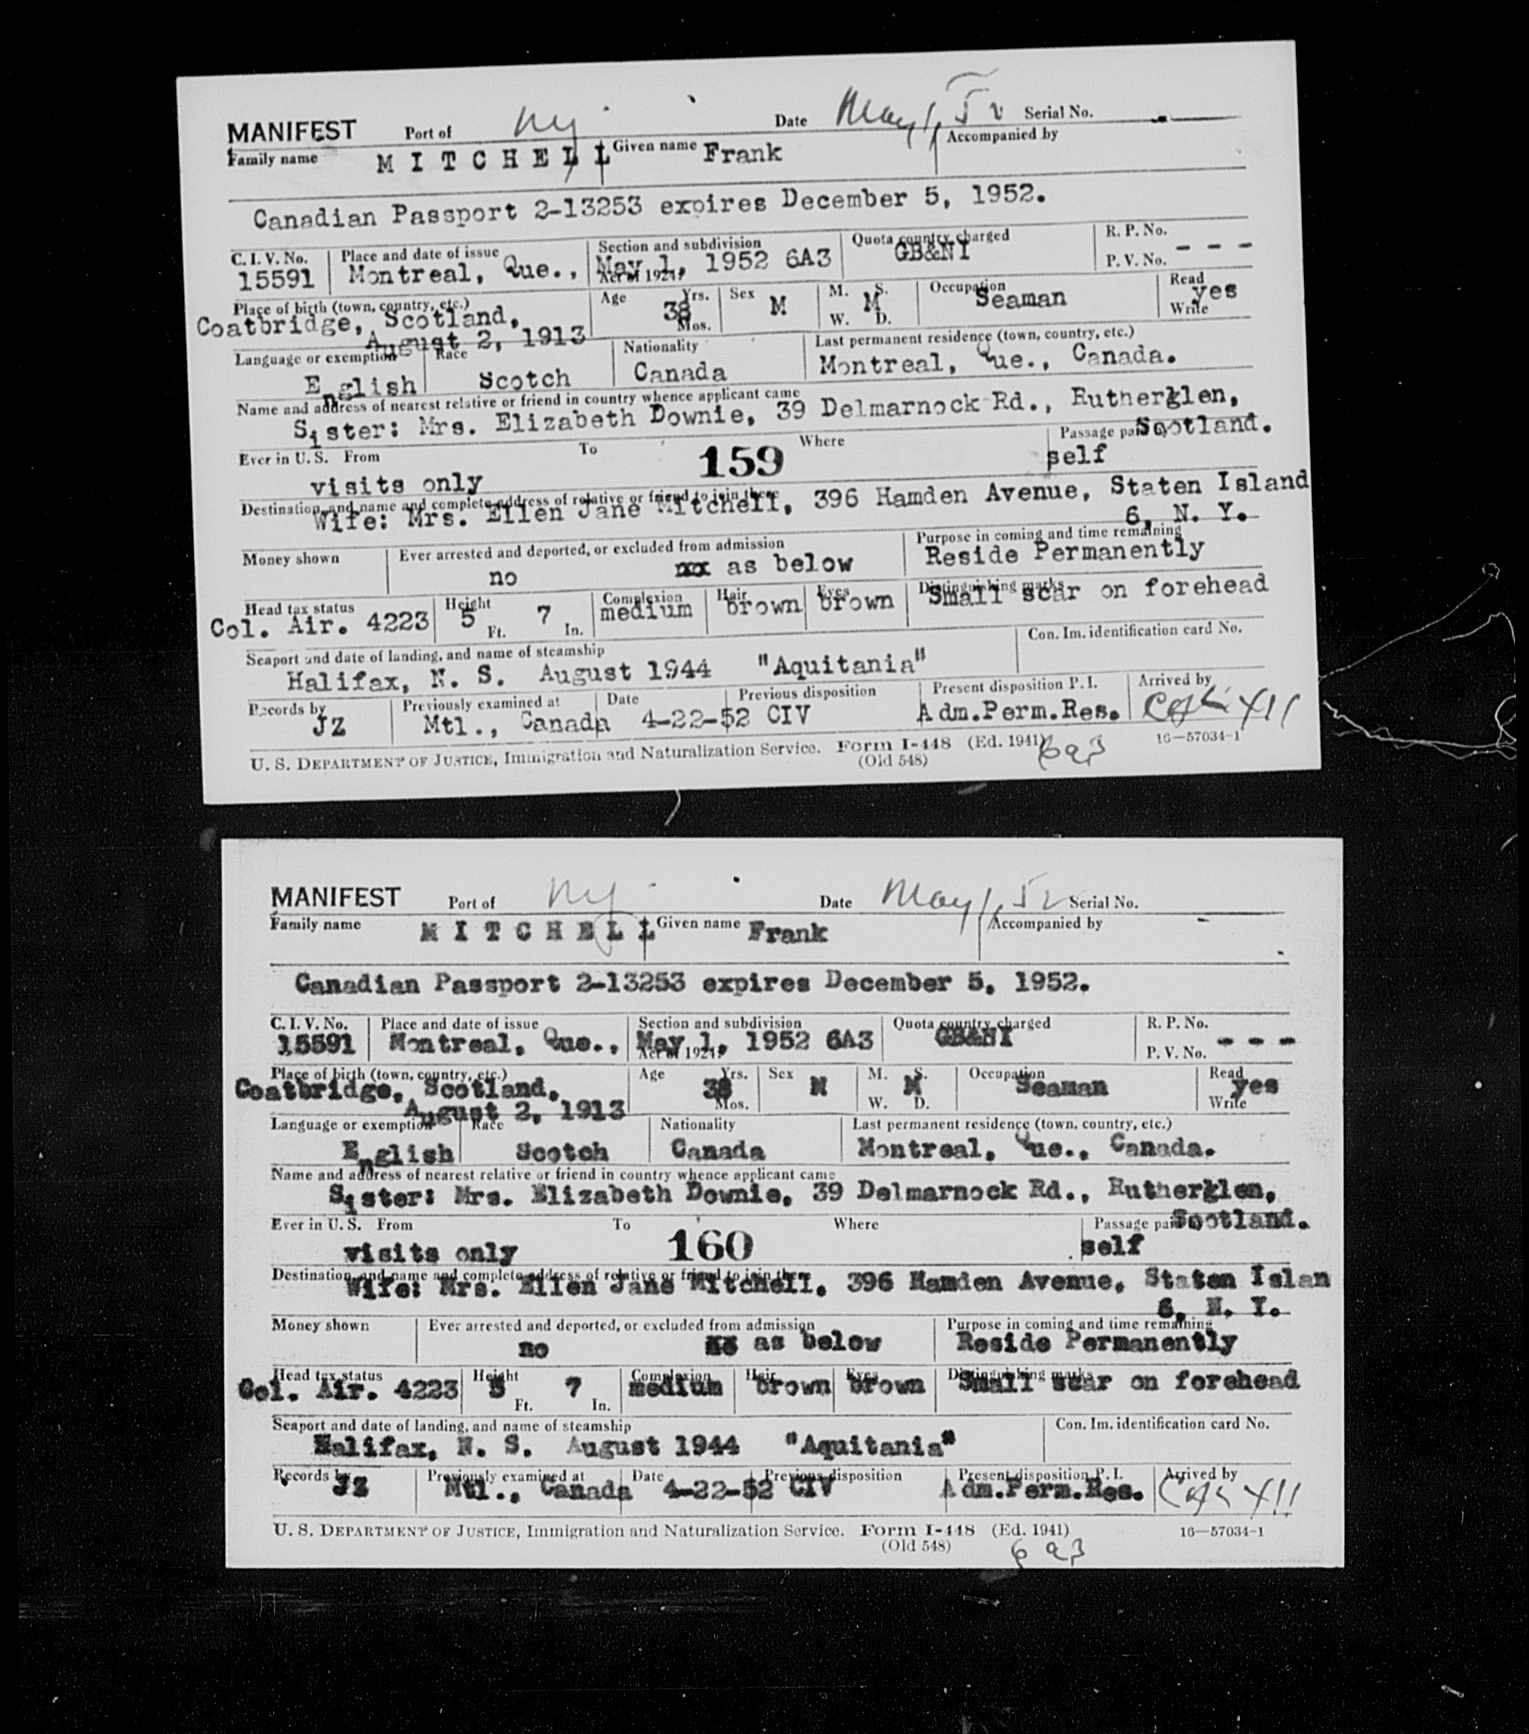 MANIFEST Port of NY Date May 1, 52 Serial No.
Family name MITCHELL Given name Frank Accompanied by
Canadian Passport 2-13253 expires December 5, 1952.
C. I. V. No. Place and date of issue Section and subdivision Quota country charged R. P. No.
15591 Montreal, Que., May 1, 1952 6A3 GB&NI - - -
Act of 1924, P. V. No.
Place of birth (town, country, etc.) Age Yrs. Sex M. S. Occupation Read
Coatbridge, Scotland, 38 M M Seaman yes
August 2, 1913 Mos. W. D. Write
Language or exemption Race Nationality Last permanent residence (town, country, etc.)
English Scotch Canada Montreal, Que., Canada.
Name and address of nearest relative or friend in country whence applicant came
Sister: Mrs. Elizabeth Downie, 39 Delmarnock Rd., Rutherglen,
Scotland.
Ever in U. S. From To Where Passage paid by
visits only 159 self
Destination, and name and complete address of relative or friend to join there
Wife: Mrs. Ellen Jane Mitchell, 396 Hamden Avenue, Staten Island
6, N. Y.
Money shown Ever arrested and deported, or excluded from admission Purpose in coming and time remaining
no as below Reside Permanently
Head tax status Height Complexion Hair Eyes Distinguishing marks
Col. Air. 4223 5 Ft. 7 In. medium brown brown Small scar on forehead
Seaport and date of landing, and name of steamship Con. Im. identification card No.
Halifax, N. S. August 1944 "Aquitania"
Records by Previously examined at Date Previous disposition Present disposition P. I. Arrived by
JZ Mtl., Canada 4-22-52 CIV Adm.Perm.Res.
U. S. DEPARTMENT OF JUSTICE, Immigration and Naturalization Service. Form I-448 (Ed. 1941) 16—57034-1
(Old 548) 6a3
MANIFEST Port of NY Date May 1, 52 Serial No.
Family name MITCHELL Given name Frank Accompanied by
Canadian Passport 2-13253 expires December 5, 1952.
C. I. V. No. Place and date of issue Section and subdivision Quota country charged R. P. No.
15591 Montreal, Que., May 1, 1952 6A3 GB&NI - - -
Act of 1924, P. V. No.
Place of birth (town, country, etc.) Age Yrs. Sex M. S. Occupation Read
Coatbridge, Scotland, 38 M M Seaman yes
August 2, 1913 Mos. W. D. Write
Language or exemption Race Nationality Last permanent residence (town, country, etc.)
English Scotch Canada Montreal, Que., Canada.
Name and address of nearest relative or friend in country whence applicant came
Sister: Mrs. Elizabeth Downie, 39 Delmarnock Rd., Rutherglen,
Scotland.
Ever in U. S. From To Where Passage paid by
visits only 160 self
Destination, and name and complete address of relative or friend to join there
Wife: Mrs. Ellen Jane Mitchell, 396 Hamden Avenue, Staten Islan
6, N. Y.
Money shown Ever arrested and deported, or excluded from admission Purpose in coming and time remaining
no as below Reside Permanently
Head tax status Height Complexion Hair Eyes Distinguishing marks
Col. Air. 4223 5 Ft. 7 In. medium brown brown Small scar on forehead
Seaport and date of landing, and name of steamship Con. Im. identification card No.
Halifax, N. S. August 1944 "Aquitania"
Records by Previously examined at Date Previous disposition Present disposition P. I. Arrived by
JZ Mtl., Canada 4-22-52 CIV Adm.Perm.Res.
U. S. DEPARTMENT OF JUSTICE, Immigration and Naturalization Service. Form I-448 (Ed. 1941) 16—57034-1
(Old 548) 6a3